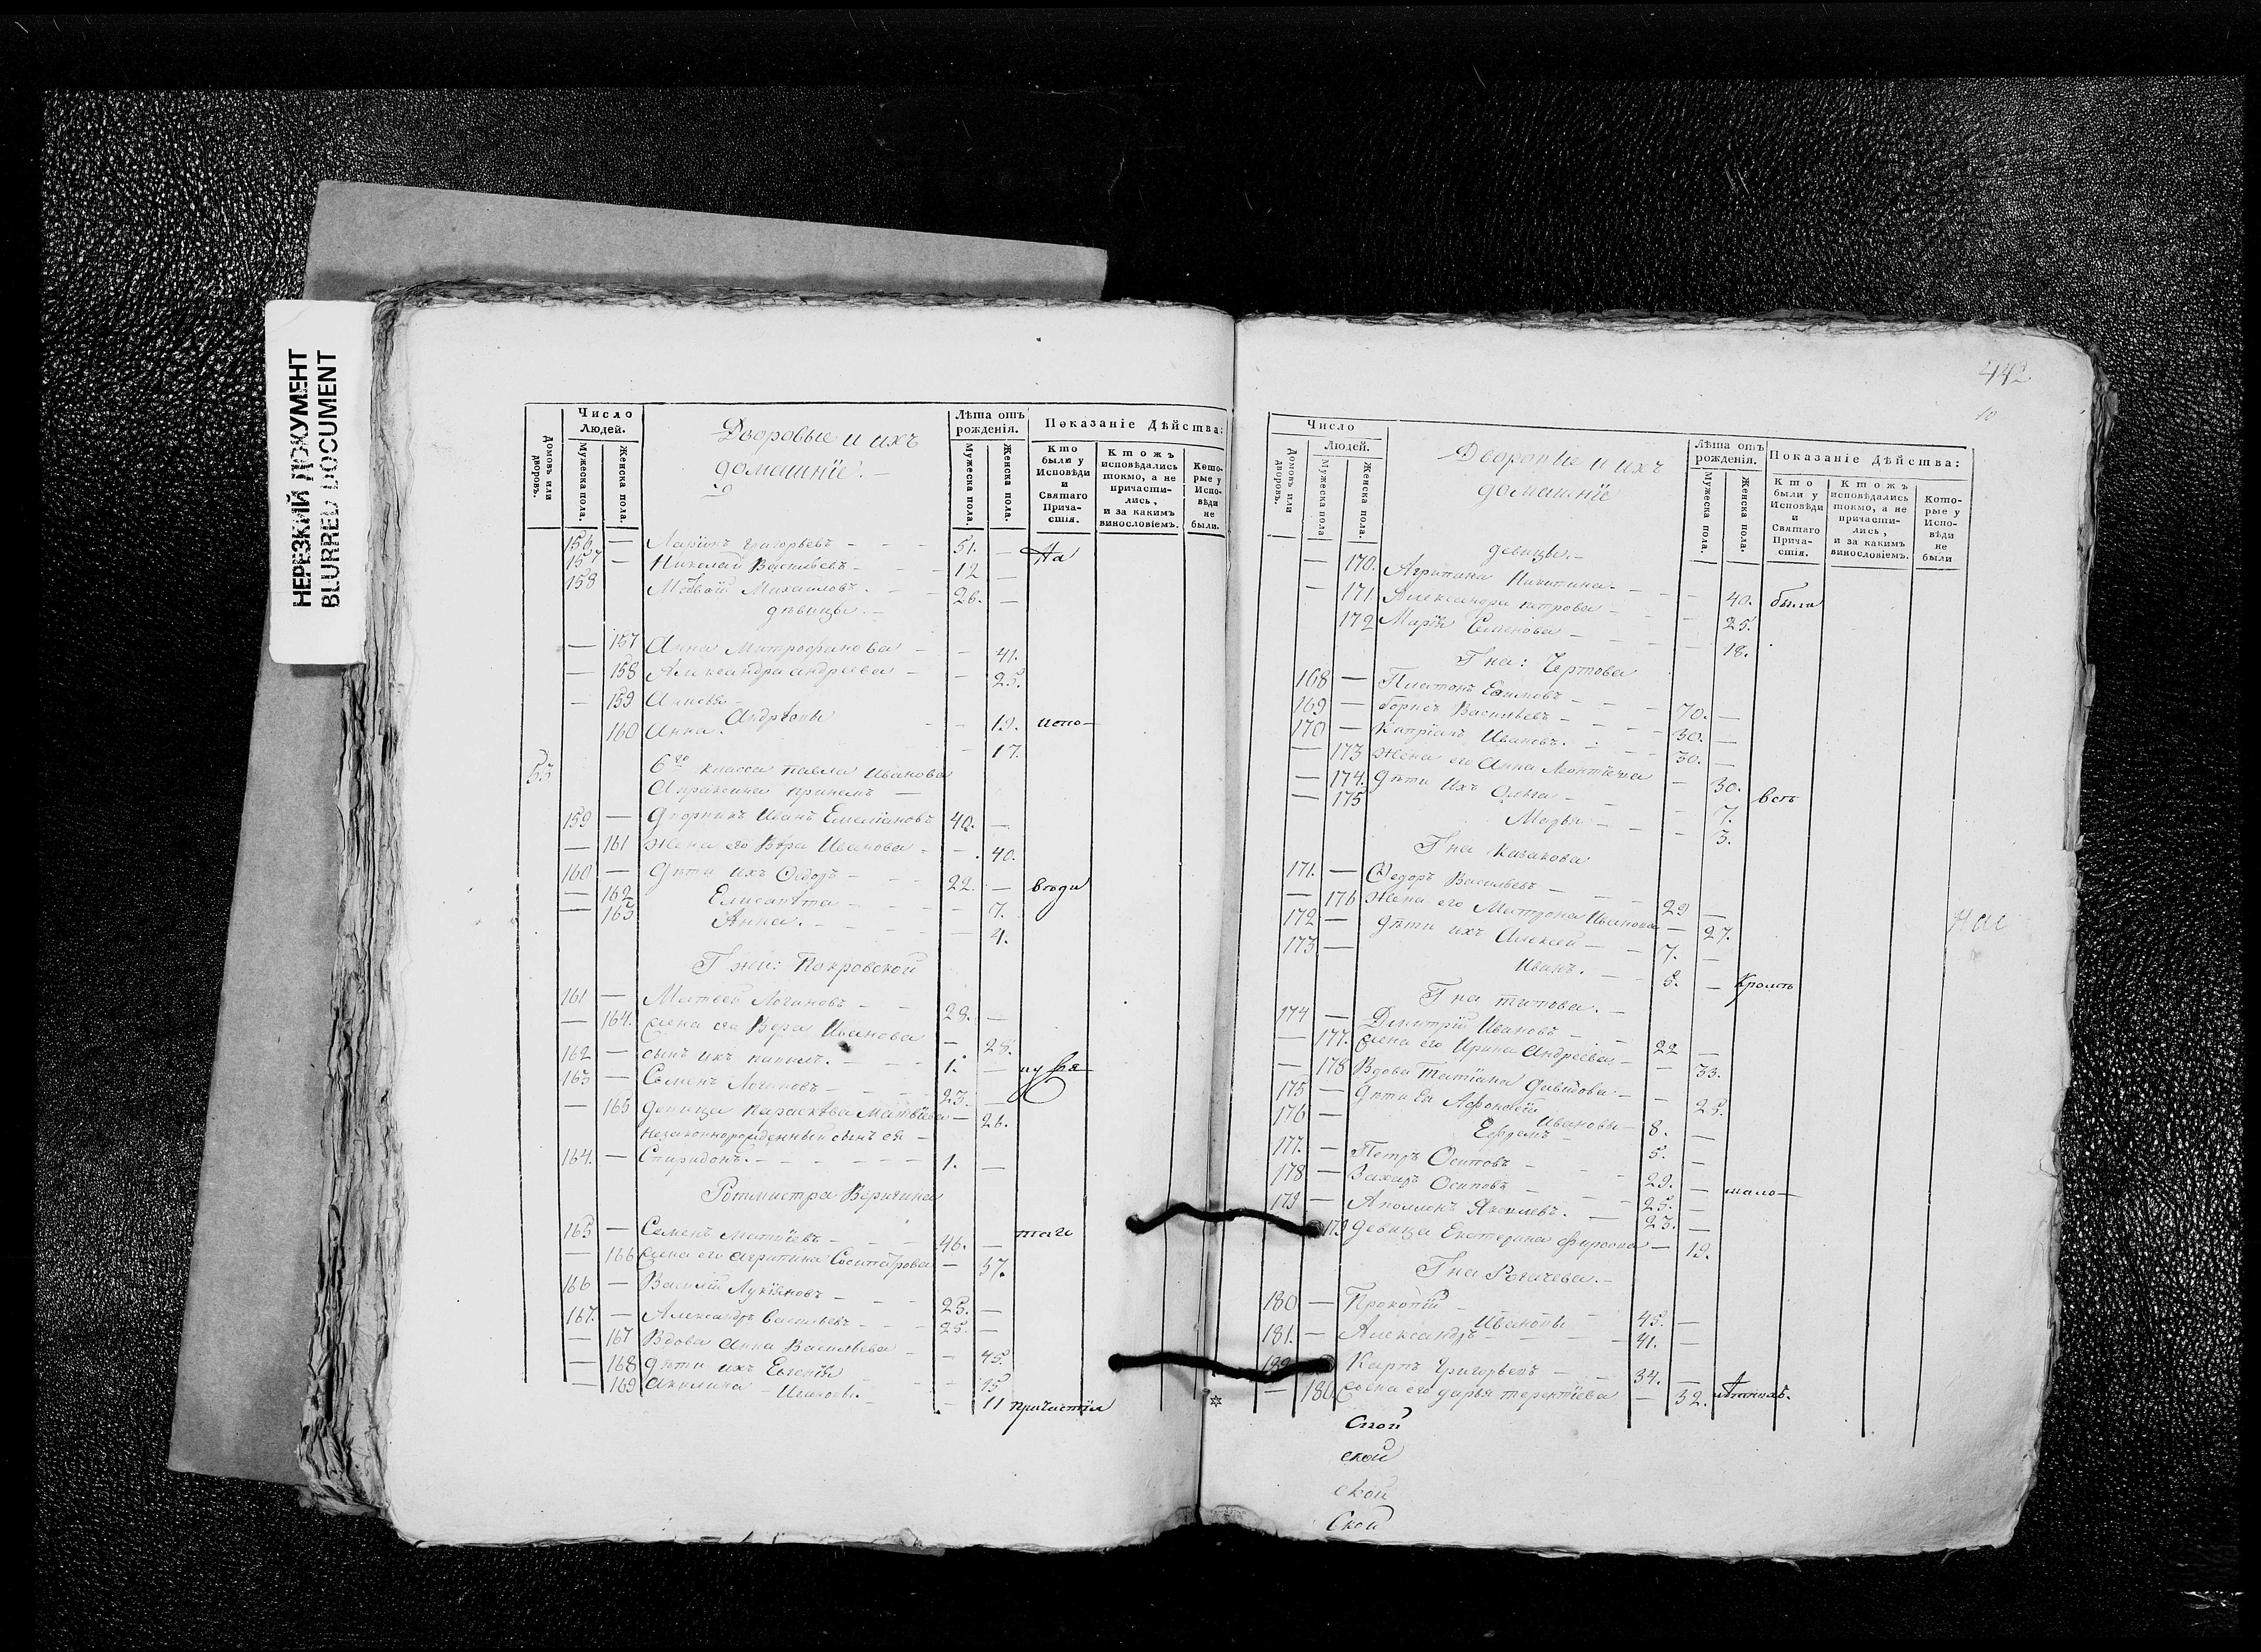 НЕРЕЗКИЙ ДОКУМЕНТ
BLURRED DOCUMENT
Домовъ или дворовъ.
Число Людей.
Мужеска пола.
Женска пола.
Дворовые и ихъ
домашніе.
Лѣта отъ рожденія.
Мужеска пола.
Женска пола.
Показаніе Дѣйства:
Кто были у Исповѣди и Святаго Причастія.
Кто жъ исповѣдались токмо, а не причастились, и за какимъ винословіемъ.
Которые у Исповѣди не были.
156 — Ларіонъ Григорьевъ - - - 51. — На
157 — Николай Васильевъ - - - 12 —
158 Михайловъ - - 26. —
дѣвицы. -
— 157 Анна Митрофанова - - 41.
— 158 Александра Андреева - - 25.
— 159
Андреевы - - 19. испо-
160 Анна. - 17.
55 6го класса Павла Иванова
159 — Дворникъ Иванъ Емеліановъ 40. —
— 161 Жена его Вѣра Иванова - - 40.
160 — Дѣти ихъ Ѳедоръ - - - 22. — вѣди
— 162 Елисавета - - - - 7.
— 163 Анна. - - - - - 4.
Гжи: Покровской
161 — Матвей Логиновъ - - 28. —
— 164. Жена его Вера Иванова — 28.
162 — сынъ ихъ - - - 1. —
163 — Семенъ Логиновъ - - - 23. —
— 165 девица Параскева Матвѣева — 26.
Незаконнорожденный сынъ ея —
164. — Спиридонъ. - - - - - - 1. —
Ротмистра
165 — Семенъ Матвѣевъ - - - 46. — таго
— 166 Жена его Агрипина — 37.
166 — Василій Лукіяновъ - - - 25. —
167. — Александръ Васильевъ - - - 25. —
— 167 Вдова Анна Васильева - - 45.
— 168 Дѣти ихъ Евгенія - - - 15
— 169 Акилина - Ивановы. - - 11 Причастія
442
10
Число Людей.
Домовъ или дворовъ.
Мужеска пола
Женска пола.
Дворовые и ихъ
домашніе
Лѣта отъ рожденія.
Мужеска пола.
Женска пола.
Показаніе Дѣйства:
Кто были у Исповѣди и Святаго Причастія.
Кто жъ исповѣдались токмо, а не причастились, и за какимъ винословіемъ.
Которые у Исповѣди не были
девицы. -
— 170. Агрипина Никитина. - - - 40. были
— 171. Александра Петрова - - - 25.
172 Марія Семенова - - - 18.
Гна: Чертова
168 — Платонъ Ефимовъ - - - 70. —
169 — Борисъ Васильевъ - - - - 30. —
170 — Капріанъ Ивановъ. - - - 30. —
— 173 Жена его Анна Леонтіева — 30. всѣ
— 174. дѣти ихъ Ольга - - - 7.
— 175 Марья - - - 3.
Гна Казакова
171. — Ѳедоръ Васильевъ - - - 29 —
— 176 Жена его Матрона Иванова — 27.
172 — дѣти ихъ Алексей - - 7. —
173 — Иванъ. - - 5. — Кромѣ
Гна Титова. -
174 — Димитрій Ивановъ - - - 22 —
— 177. Жена его Ирина Андреева - - 33.
— 178 Вдова Татіана Давыдова - - 25.
175 — Дѣти Ея Афонасій
Ивановы - 8. —
176 — Ефремъ - 5. —
177. — Петръ Осиповъ - - - 29. —
178 — Захаръ Осиповъ - - - 25. — мало-
179 — Аполлонъ Яковлевъ. - - 23. —
179 девица Екатерина Фирсова — 19.
Гна Рогачева. -
180 — Прокопій -
Ивановы - 45. —
181. — Александръ - - - - 41. —
182 Карпъ Григорьевъ - - - 34. —
— 180 Жена его Дарья Терентіева — 32.
ской
ской
ской
Ской